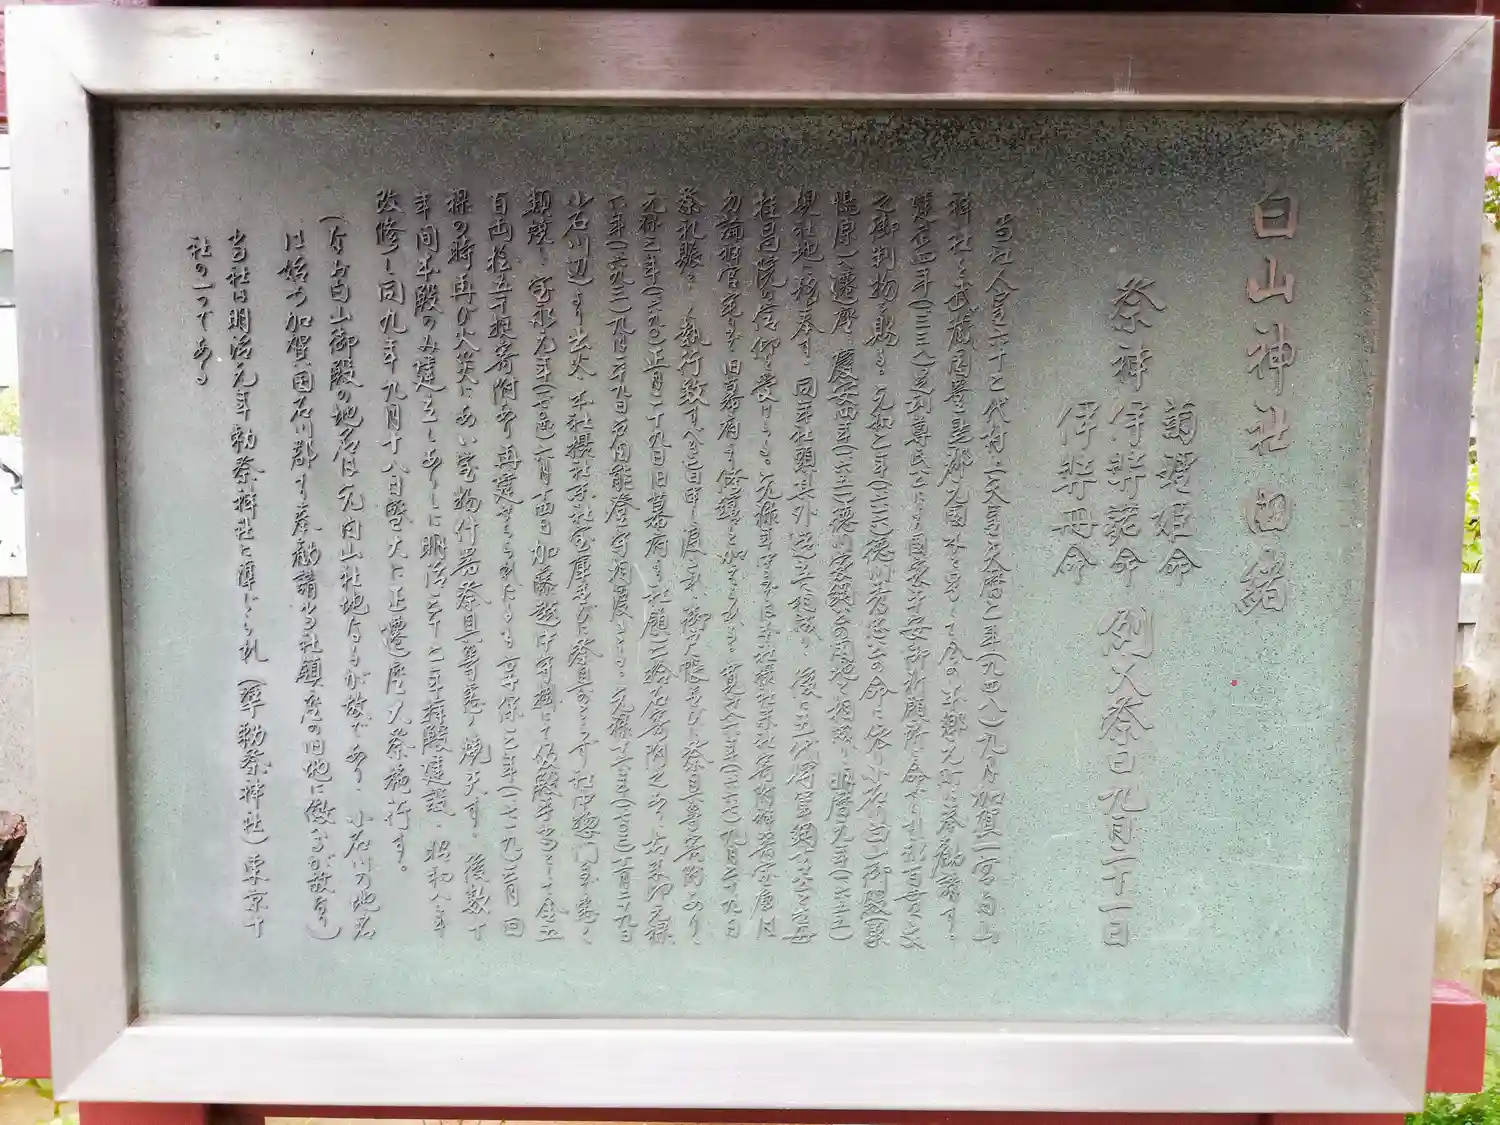 白山神社由緒
菊理姫命
祭神 伊弉諾命 例大祭日九月二十一日
伊弉冊命
当社人皇六十二代村上天皇天暦二年(九四八)九月加賀一宮白山
神社を武蔵国豊島郡元国 今の本郷元町に奉勧請す。
建 四年( 三三八)足利尊氏公により国家平安御祈願所を命ぜられ 百貫文
之御判物を賜る。元和二年(一六一六)徳川秀忠公の命に依り小石川白山御殿(
)遷座、慶安四年(一六五一)徳川家綱公の用地と相成り 明暦元年(一六五五)
現社地に移し奉す。同年社頭其外造立相成り、後に五代将軍綱吉公と生母
桂昌院の信仰を受けらる。元禄年 本社摂社末社 神器宝庫は
勿論神官 旧幕府より修繕を加えられる。 (一六六七)九月二十九日
祭礼賑々しく執行致すべき旨申し渡され、御戸帳並びに祭具等寄附あり、
元禄三年(一六九〇)正月二十九日旧幕府より社領三拾石寄附 御朱印元禄
六年(一六九三)九月二十九日 能登守 元禄十六年(一七〇三)十一月二十九日
小石川辺より出火、本社摂社末社宝庫並びに祭具 社中惣門 悉く
類焼し、宝永元年( ) 月十四日加藤越中守掛にて仮殿手当として金五
百両桧五千挺寄附あり再建せられたるも享保 年(一七一九)三月 回
禄の時再び火災にあい宝物什器祭具等悉く焼失す。後数十
年間本殿のみ建立しありしに明治二十七年拝殿建設、昭和八年
改修し同九年九月十八日盛大に正遷座大祭施行す。
(なお白山御殿の地名は元白山社地なるが故であり、小石川の地名
は始め加賀国石川郡より奉勧請当社鎮座の旧地に倣るが故なり)
当社は明治元年勅祭神社に準じられ(準勅祭神社)東京十
社の一つである